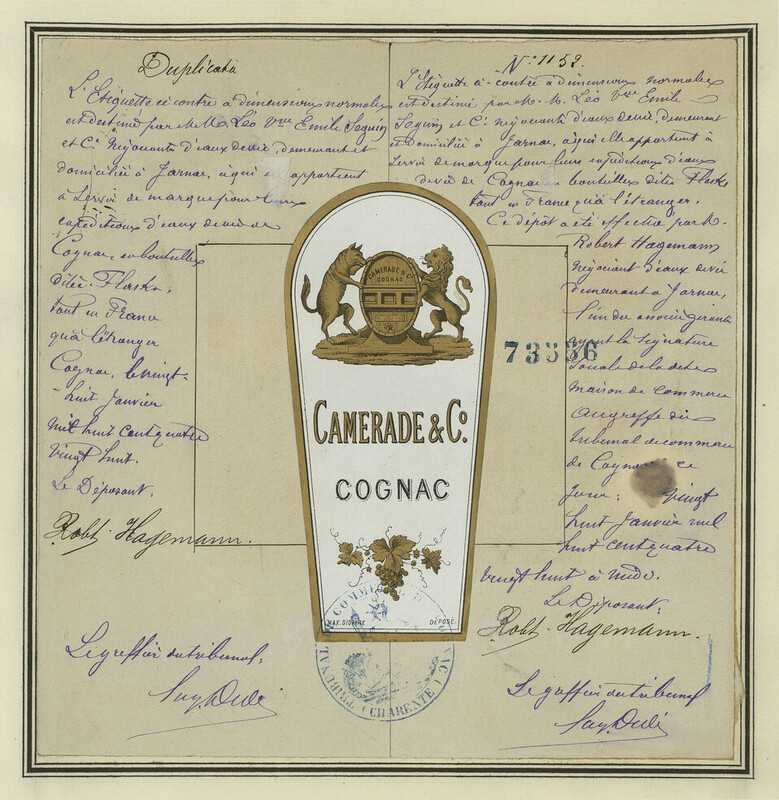 Duplicata
L'Etiquette ci contre à dimensions normales
est destiné par M. M. Léo Vve Emile Seguin
et Ce Négociants d'eaux de vie, demeurant et
domiciliés à Jarnac, à qui appartient
à servir de marque pour leurs
expéditions d'eaux de vie de
Cognac en bouteilles
dites Flasks,
tant en France
qu'à l'étranger
Cognac, le vingt-
huit Janvier
mil huit cent quatre
vingt huit.
Le Déposant,
Robt Hagemann.
Le greffier du tribunal,
CAMERADE & Co
COGNAC
CAMERADE & Co.
COGNAC
DÉPOSÉ
TRIBUNAL DE COMMERCE
(CHARENTE)
No 1152.
L'Etiquette ci-contre à dimensions normales
est destiné par M. M. Léo Vve Emile
Seguin et Ce négociants d'eaux de vie, demeurant
et domiciliés à Jarnac, à qui elle appartient à
servir de marque pour leurs expéditions d'eaux
de vie de Cognac en bouteilles dites Flasks
tant en France qu'à l'étranger.
Ce dépôt a été effectué par M.
Robert Hagemann
négociant d'eaux de vie
demeurant à Jarnac,
l'un des associés gérants
ayant la signature
sociale de la dite
maison de commerce
au greffe du
tribunal de commerce
de Cognac ce
jour: vingt
huit Janvier mil
huit cent quatre
vingt huit à midi.
Le Déposant:
Robt Hagemann.
Le greffier du tribunal
73536